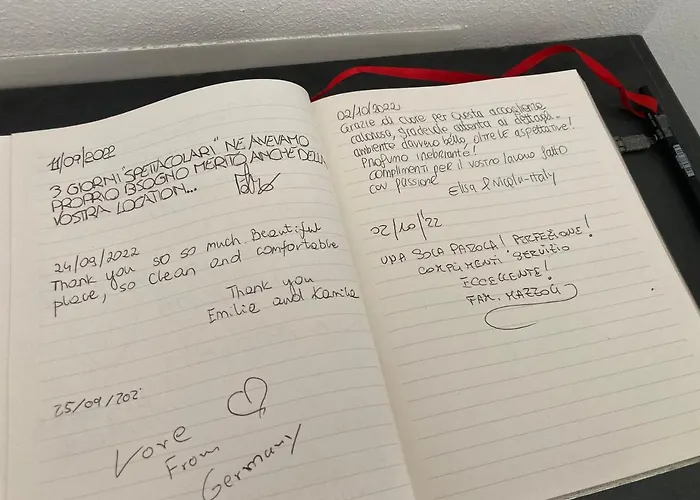 11/09/2022
3 GIORNI "SPETTACOLARI" NE AVEVAMO
PROPRIO BISOGNO MERITO ANCHE DELLA
VOSTRA LOCATION...
24/09/2022
Thank you so so much. Beautiful
place, so clean and comfortable
Thank you
Emilie and Kamila
25/09/202
From
Germany
02/10/2022
Grazie di cuore per questa accoglienza
calorosa, gradevole attenta ai dettagli...
ambiente davvero bello, oltre le aspettative!
Profumo inebriante!
complimenti per il vostro lavoro fatto
con passione
Elisa & Nicola-Italy
02/10/'22
UNA SOLA PAROLA! PERFEZIONE!
COMPLIMENTI SERVIZIO
ECCELLENTE!
FAM. MAZZOLI